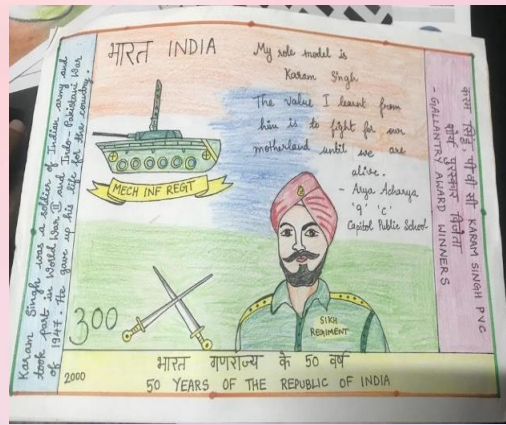 भारत INDIA
My role model is
Karam Singh
The value I learnt from
him is to fight for our
motherland until we are
alive.
- Arya Acharya
'9' 'C'
Capitol Public School
MECH INF REGT
300
SIKH
REGIMENT
Karam Singh was a soldier of Indian army and
took part in World War II and Indo-Pakistani War
of 1947. He gave up his life for the country.
करम सिंह पी वी सी KARAM SINGH PVC
शौर्य पुरस्कार विजेता
- GALLANTRY AWARD WINNERS
भारत गणराज्य के 50 वर्ष
2000
50 YEARS OF THE REPUBLIC OF INDIA